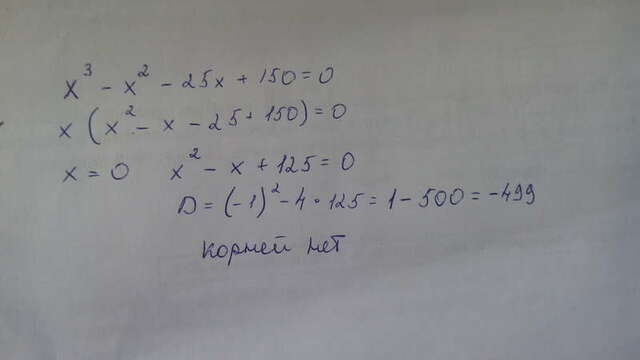 x³ - x² - 25x + 150 = 0
x (x² - x - 25 + 150) = 0
x = 0 x² - x + 125 = 0
D = (-1)² - 4 · 125 = 1 - 500 = -499
корней нет